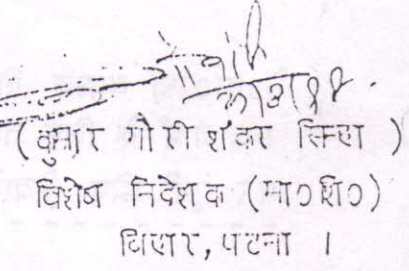 ( कुमार गौरीशंकर सिन्हा )
विशेष निदेशक (मा०शि०)
बिहार, पटना ।